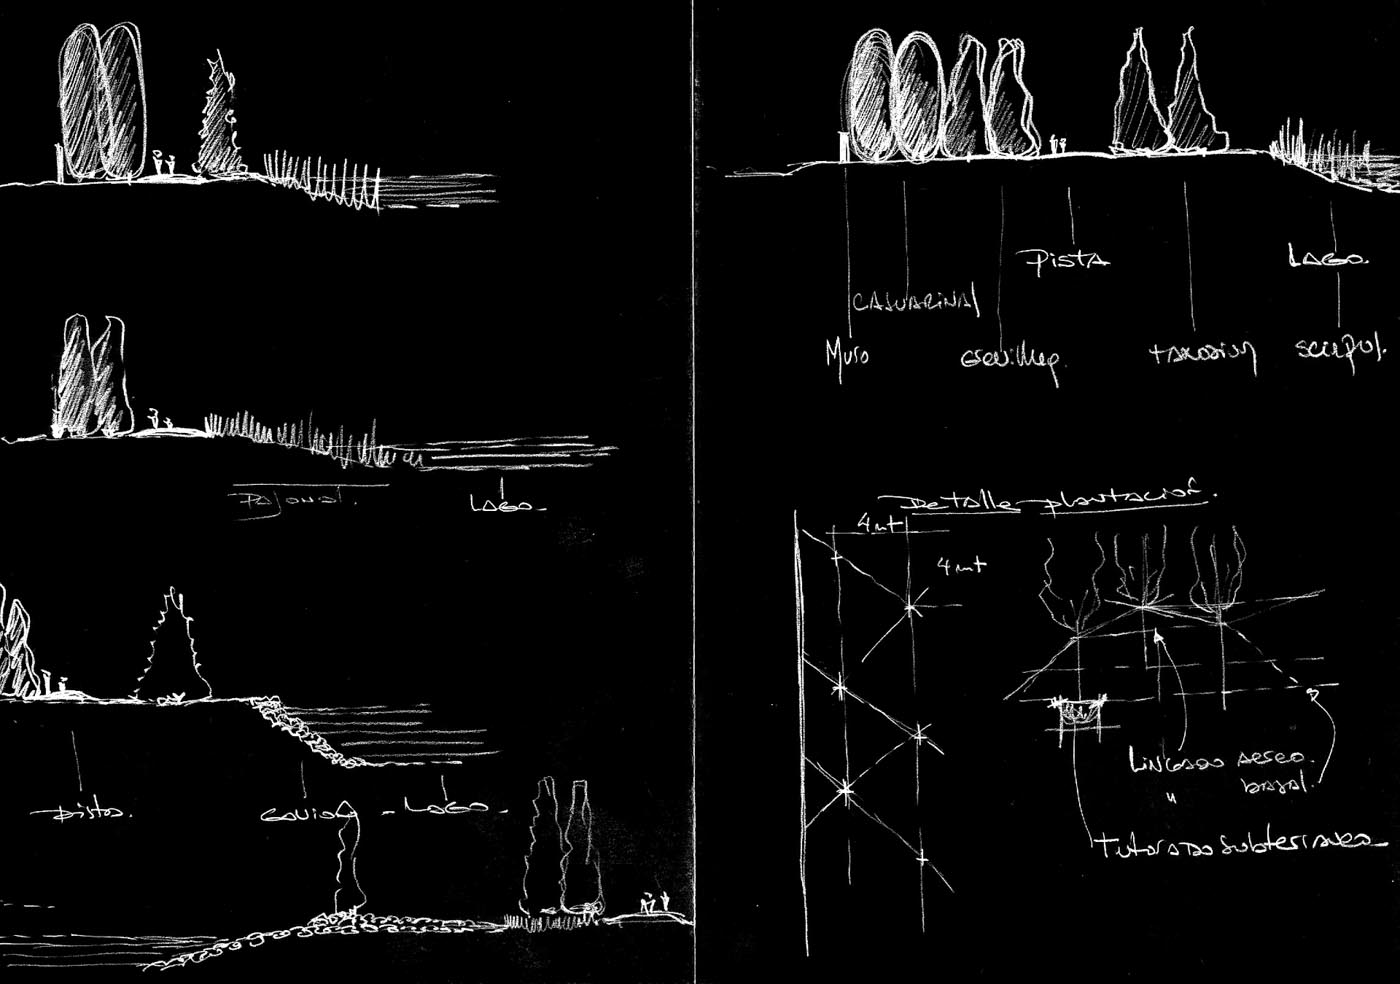 Pajonal.
Lago
Pista.
Gavion
Lago
Pista
Lago.
Casuarinas
Muro
Grevilleas.
Taxodium
Scirpus.
Detalle plantación.
4 mt
4 mt
Lingado aereo.
" basal.
Tutorado Subterraneo